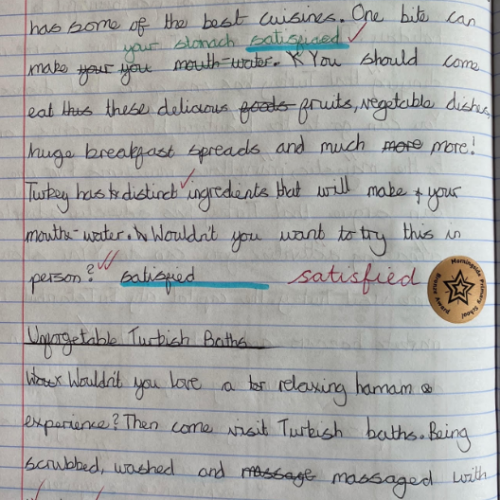 has some of the best cuisines. One bite can
your stomach satisfised
make your you mouth-water. You should come
eat this these delicious foods fruits, vegetable dishes,
huge breakfast spreads and much more more!
Turkey has distinct ingredients that will make your
mouth-water. Wouldn't you want to try this in
person? satisfied satisfied
Morningside Primary School
Writing Award
Unforgetable Turkish Baths
Wouldn't you love a relaxing hamam
experience? Then come visit Turkish baths. Being
scrubbed, washed and massage massaged with